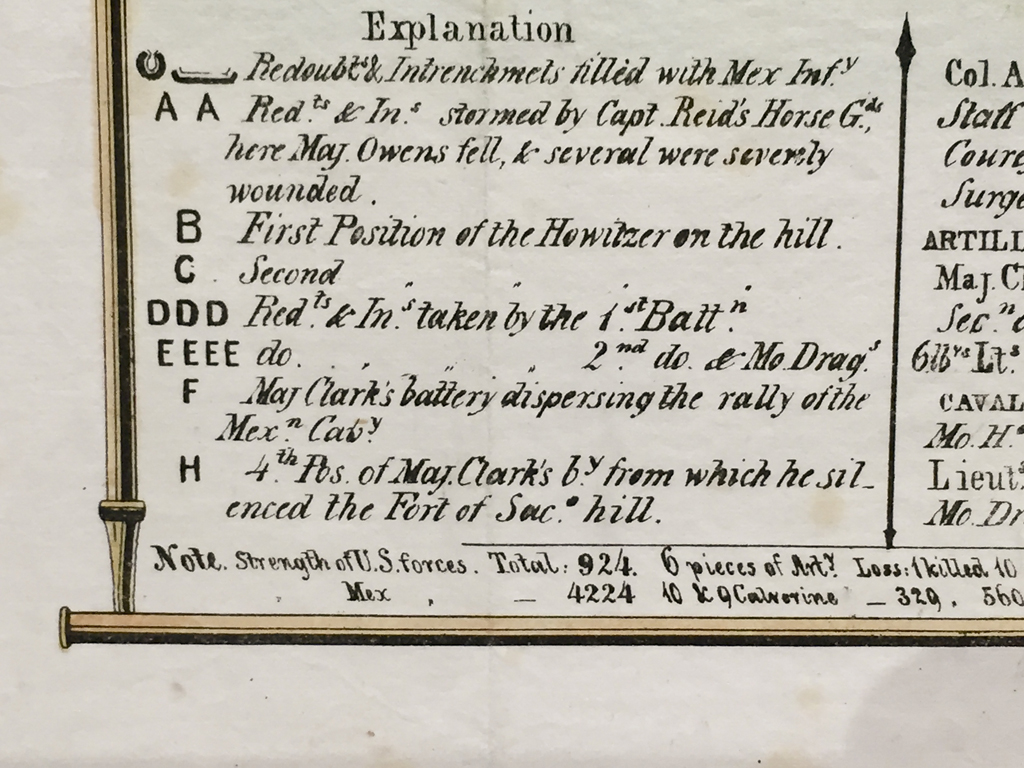 Explanation
Redoubts & Intrenchmets filled with Mex Inf.y
A A Red.ts & In.s stormed by Capt. Reid's Horse G.ds,
here Maj. Owens fell, & several were severely
wounded.
B First Position of the Howitzer on the hill.
C. Second " " "
DDD Red.ts & In.s taken by the 1.st Batt.n
EEEE do. " " " 2.nd do. & Mo. Drag.s
F Maj Clark's battery dispersing the rally of the
Mex.n Cav.y
H 4.th Pos. of Maj. Clark's b.y from which he sil-
enced the Fort of Sac.o hill.
Note. Strength of U.S. forces. Total: 924. 6 pieces of Art.y Loss: 1 killed 10
" Mex " — 4224 10 & 9 Culverine — 329, 560
Col. A
Staff
Coure
Surge
ARTILL
Maj. Cl
Sec.n
6lbrs Lt.s
CAVAL
Mo. H.
Lieut
Mo. Dr